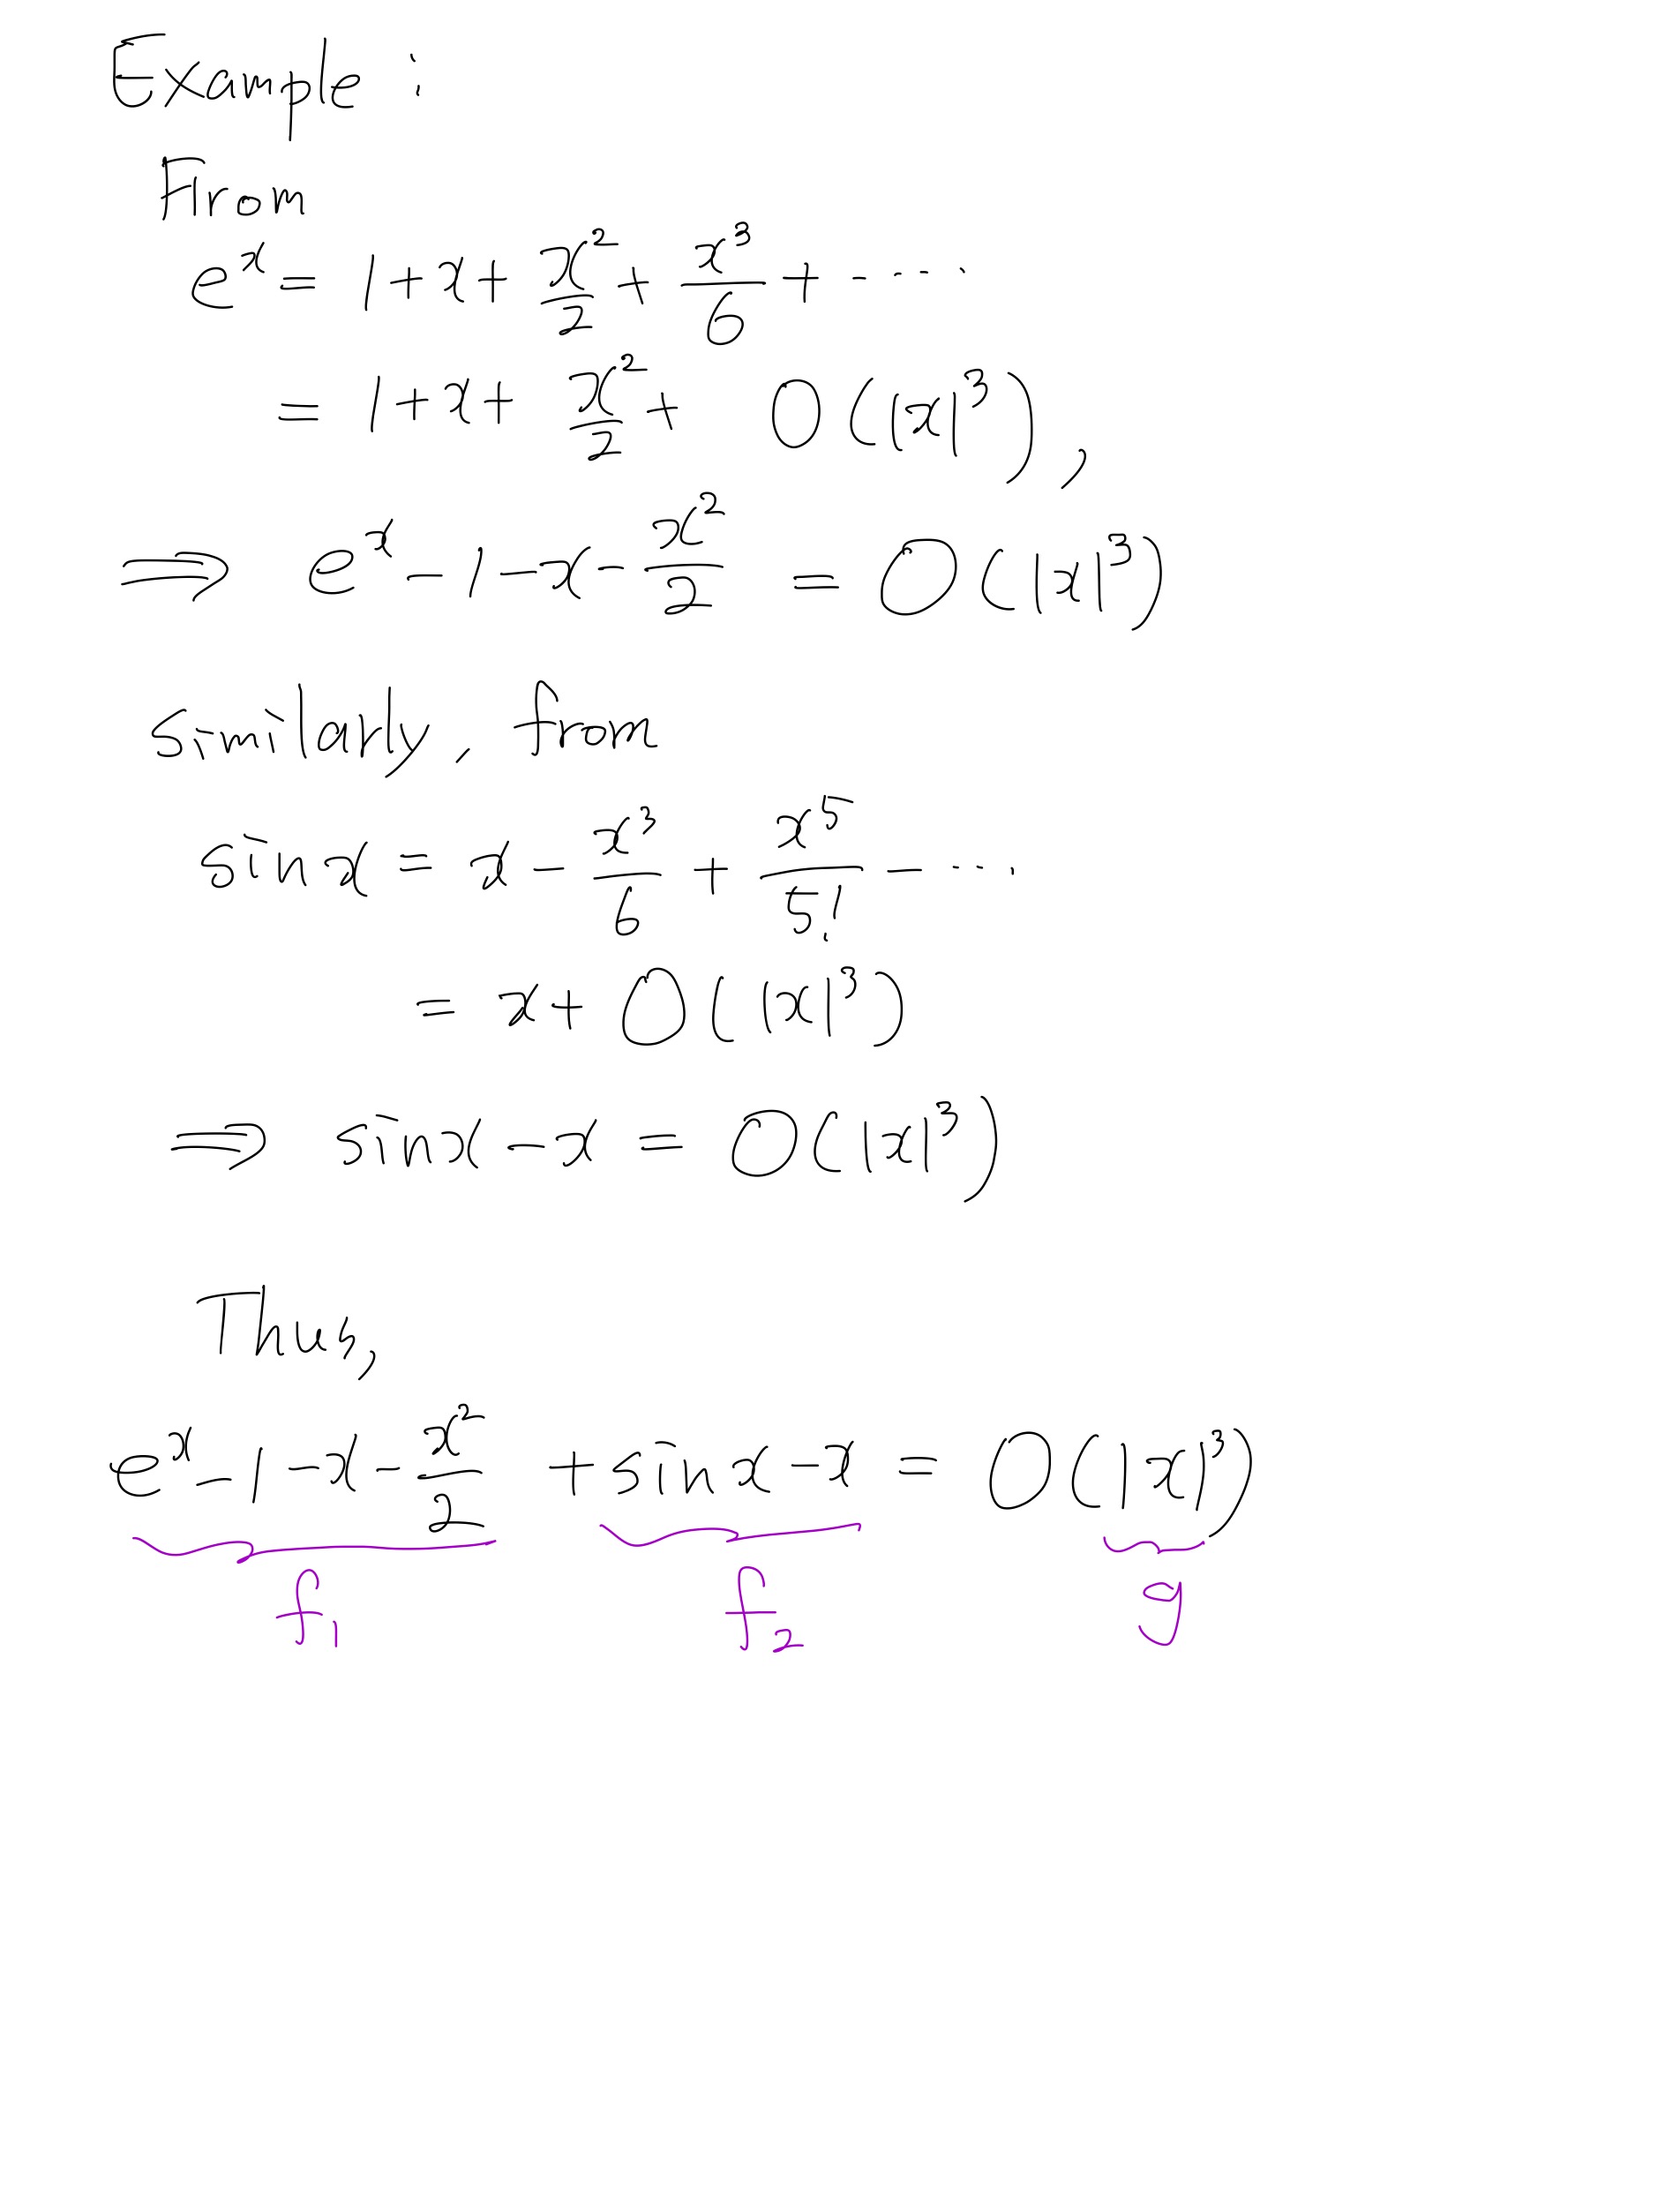 Example :
From
e^x = 1 + x + x^2/2 + x^3/6 + ----
= 1 + x + x^2/2 + O(|x|^3),
⟹ e^x - 1 - x - x^2/2 = O(|x|^3)
similarly, from
sin x = x - x^3/6 + x^5/5! - ----
= x + O(|x|^3)
⟹ sin x - x = O(|x|^3)
Thus,
e^x - 1 - x - x^2/2 + sin x - x = O(|x|^3)
f_1 f_2 g